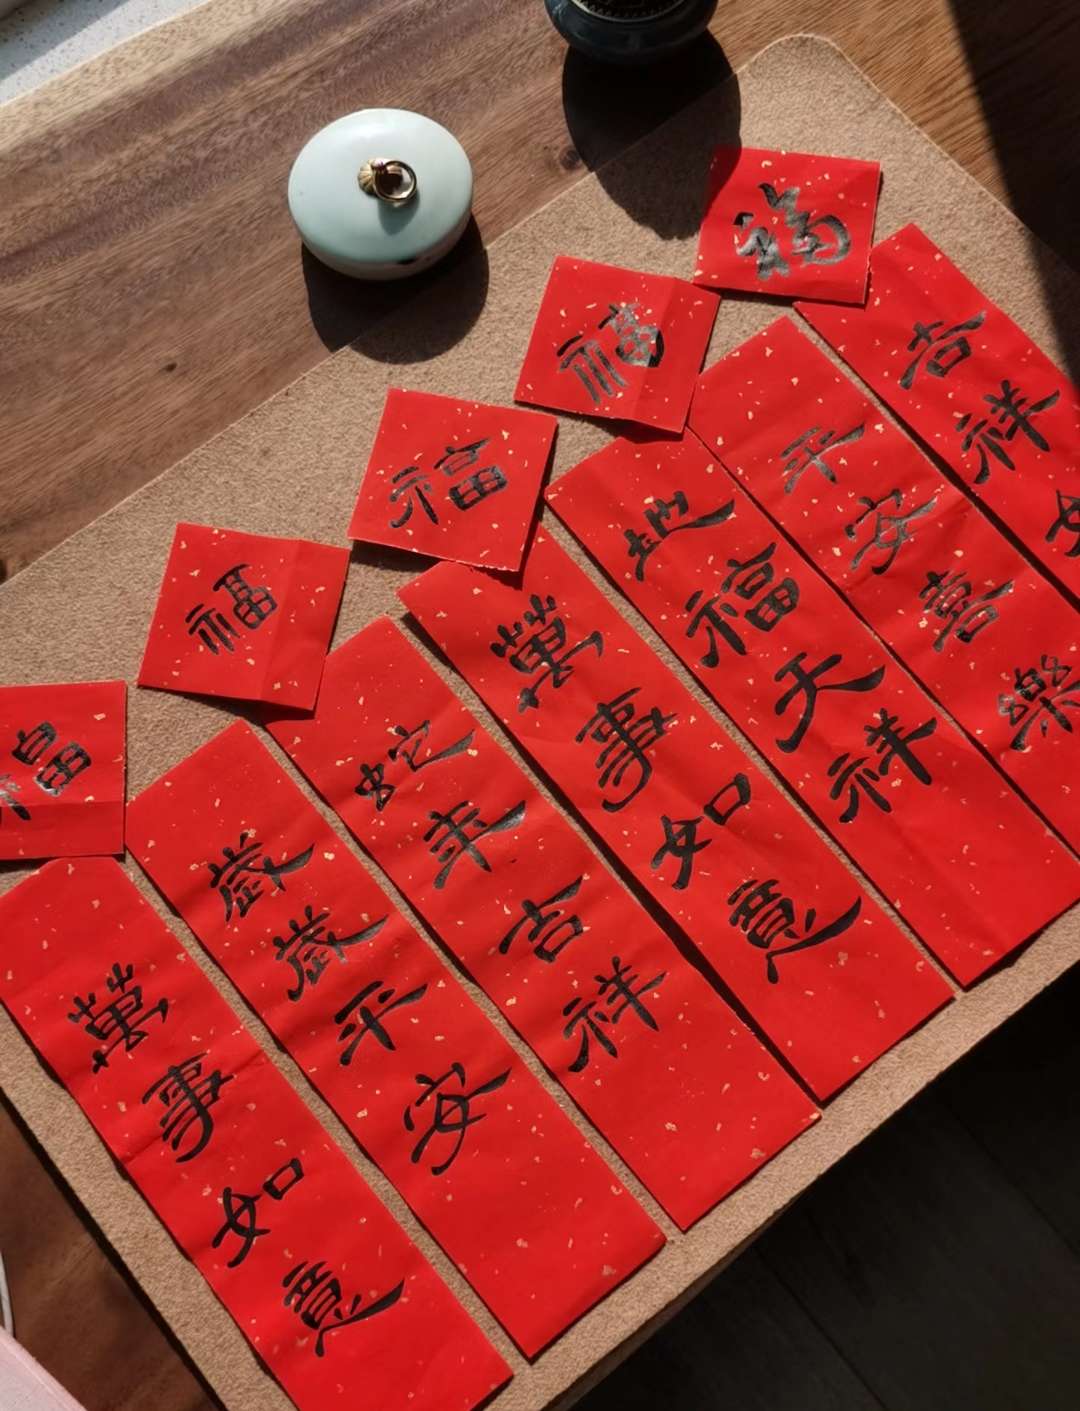 福
福
福
福
福
萬事如意
歲歲平安
蛇年吉祥
萬事如意
地福天祥
平安喜樂
吉祥如